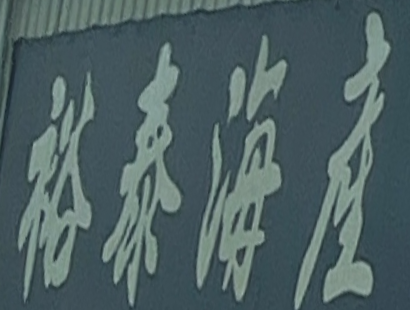 裕泰海產